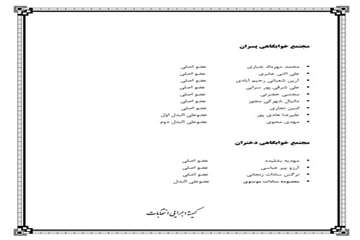 مجتمع خوابگاهی پسران
محمد مهرداد عضو اصلی
علی عضو اصلی
آرین آبادی عضو اصلی
علی شرقی پور عضو اصلی
مجتبی عضو اصلی
دانیال شهرکی عضو اصلی
امین عضو اصلی
علیرضا هادی پور عضو علی البدل اول
مهدی محبوبی عضو علی البدل دوم
مجتمع خوابگاهی دختران
مهدیه بخشیده عضو اصلی
آرزو پیر عباسی عضو اصلی
نرگس سادات عضو اصلی
معصومه سادات موسوی عضو علی البدل
کمیته اجرایی انتخابات